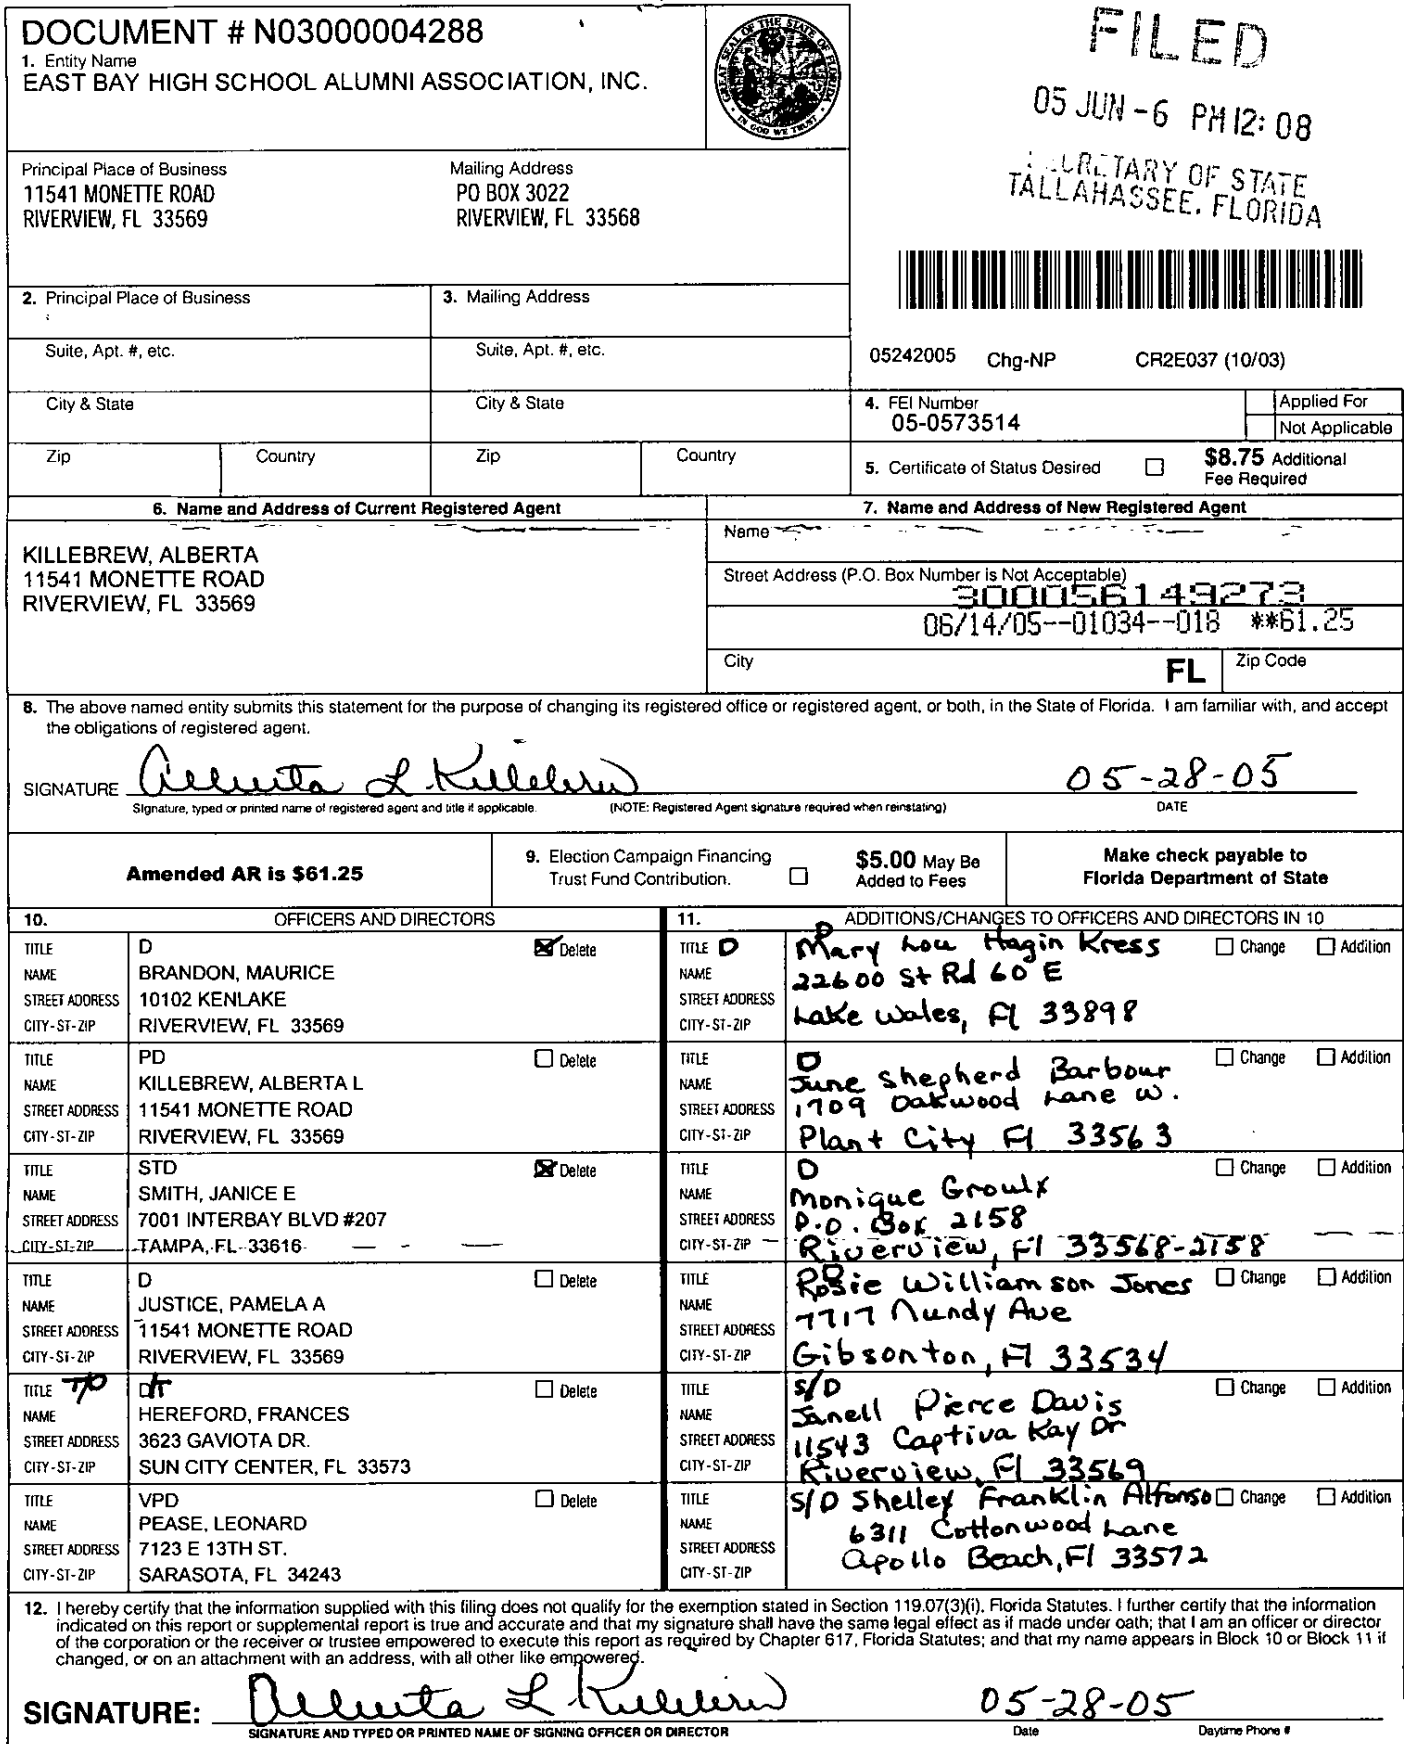 DOCUMENT # N03000004288
1. Entity Name
EAST BAY HIGH SCHOOL ALUMNI ASSOCIATION, INC.
GREAT SEAL OF THE STATE OF FLORIDA
IN GOD WE TRUST
FILED
05 JUN -6 PM 12: 08
SECRETARY OF STATE
TALLAHASSEE, FLORIDA
Principal Place of Business
11541 MONETTE ROAD
RIVERVIEW, FL 33569
Mailing Address
PO BOX 3022
RIVERVIEW, FL 33568
2. Principal Place of Business
3. Mailing Address
Suite, Apt. #, etc.
Suite, Apt. #, etc.
05242005 Chg-NP CR2E037 (10/03)
City & State
City & State
4. FEI Number
05-0573514
Applied For
Not Applicable
Zip
Country
Zip
Country
5. Certificate of Status Desired
$8.75 Additional
Fee Required
6. Name and Address of Current Registered Agent
KILLEBREW, ALBERTA
11541 MONETTE ROAD
RIVERVIEW, FL 33569
7. Name and Address of New Registered Agent
Name
Street Address (P.O. Box Number is Not Acceptable)
300056149273
06/14/05--01034--018 **61.25
City
FL
Zip Code
8. The above named entity submits this statement for the purpose of changing its registered office or registered agent, or both, in the State of Florida. I am familiar with, and accept
the obligations of registered agent.
SIGNATURE Alberta L Killebrew 05-28-05
Signature, typed or printed name of registered agent and title if applicable. (NOTE: Registered Agent signature required when reinstating) DATE
Amended AR is $61.25
9. Election Campaign Financing
Trust Fund Contribution.
$5.00 May Be
Added to Fees
Make check payable to
Florida Department of State
10. OFFICERS AND DIRECTORS
TITLE D Delete
NAME BRANDON, MAURICE
STREET ADDRESS 10102 KENLAKE
CITY-ST-ZIP RIVERVIEW, FL 33569
TITLE PD Delete
NAME KILLEBREW, ALBERTA L
STREET ADDRESS 11541 MONETTE ROAD
CITY-ST-ZIP RIVERVIEW, FL 33569
TITLE STD Delete
NAME SMITH, JANICE E
STREET ADDRESS 7001 INTERBAY BLVD #207
CITY-ST-ZIP TAMPA, FL 33616
TITLE D Delete
NAME JUSTICE, PAMELA A
STREET ADDRESS 11541 MONETTE ROAD
CITY-ST-ZIP RIVERVIEW, FL 33569
TITLE T/D Delete
NAME HEREFORD, FRANCES
STREET ADDRESS 3623 GAVIOTA DR.
CITY-ST-ZIP SUN CITY CENTER, FL 33573
TITLE VPD Delete
NAME PEASE, LEONARD
STREET ADDRESS 7123 E 13TH ST.
CITY-ST-ZIP SARASOTA, FL 34243
11. ADDITIONS/CHANGES TO OFFICERS AND DIRECTORS IN 10
D
TITLE D Mary Lou Hagin Kress Change Addition
NAME 22600 St Rd 60 E
STREET ADDRESS
CITY-ST-ZIP Lake Wales, Fl 33898
TITLE D Change Addition
NAME June Shepherd Barbour
STREET ADDRESS 1709 Oakwood Lane W.
CITY-ST-ZIP Plant City Fl 33563
TITLE D Change Addition
NAME Monique Groulx
STREET ADDRESS P.O. Box 2158
CITY-ST-ZIP Riverview, Fl 33568-2158
D
TITLE Rosie Williamson Jones Change Addition
NAME 7717 Nundy Ave
STREET ADDRESS
CITY-ST-ZIP Gibsonton, Fl 33534
TITLE S/D Change Addition
NAME Janell Pierce Davis
STREET ADDRESS 11543 Captiva Kay Dr
CITY-ST-ZIP Riverview, Fl 33569
TITLE S/D Shelley Franklin Alfonso Change Addition
NAME 6311 Cottonwood Lane
STREET ADDRESS Apollo Beach, Fl 33572
CITY-ST-ZIP
12. I hereby certify that the information supplied with this filing does not qualify for the exemption stated in Section 119.07(3)(i), Florida Statutes. I further certify that the information
indicated on this report or supplemental report is true and accurate and that my signature shall have the same legal effect as if made under oath; that I am an officer or director
of the corporation or the receiver or trustee empowered to execute this report as required by Chapter 617, Florida Statutes; and that my name appears in Block 10 or Block 11 if
changed, or on an attachment with an address, with all other like empowered.
SIGNATURE: Alberta L Killebrew 05-28-05
SIGNATURE AND TYPED OR PRINTED NAME OF SIGNING OFFICER OR DIRECTOR Date Daytime Phone #